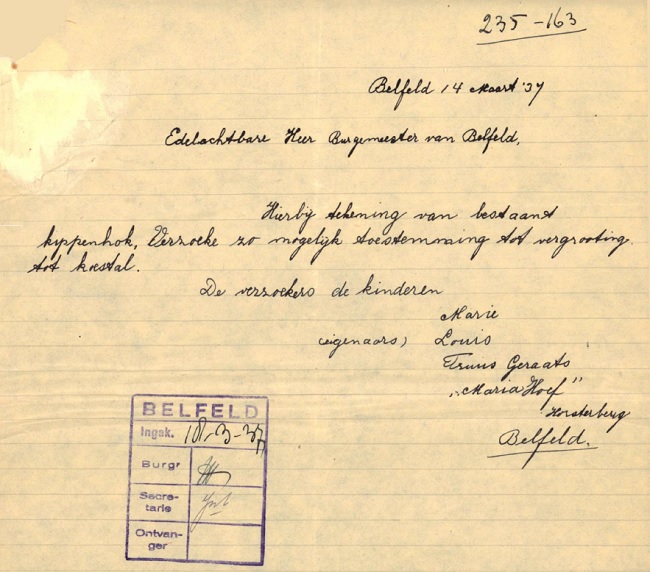 235-163
Belfeld 14 Maart '37
Edelachtbare Heer Burgemeester van Belfeld,
Hierbij tekening van bestaant
kippenhok, Verzoeke zo mogelijk toestemming tot vergrooting
tot koestal.
De verzoekers de kinderen
Marie
(eigenaars) Louis
Truus Geraats
"Maria Hoef"
Horsterberg
Belfeld.
BELFELD
Ingek. -3-37
Burgr
Secre-
tarie
Ontvan-
ger